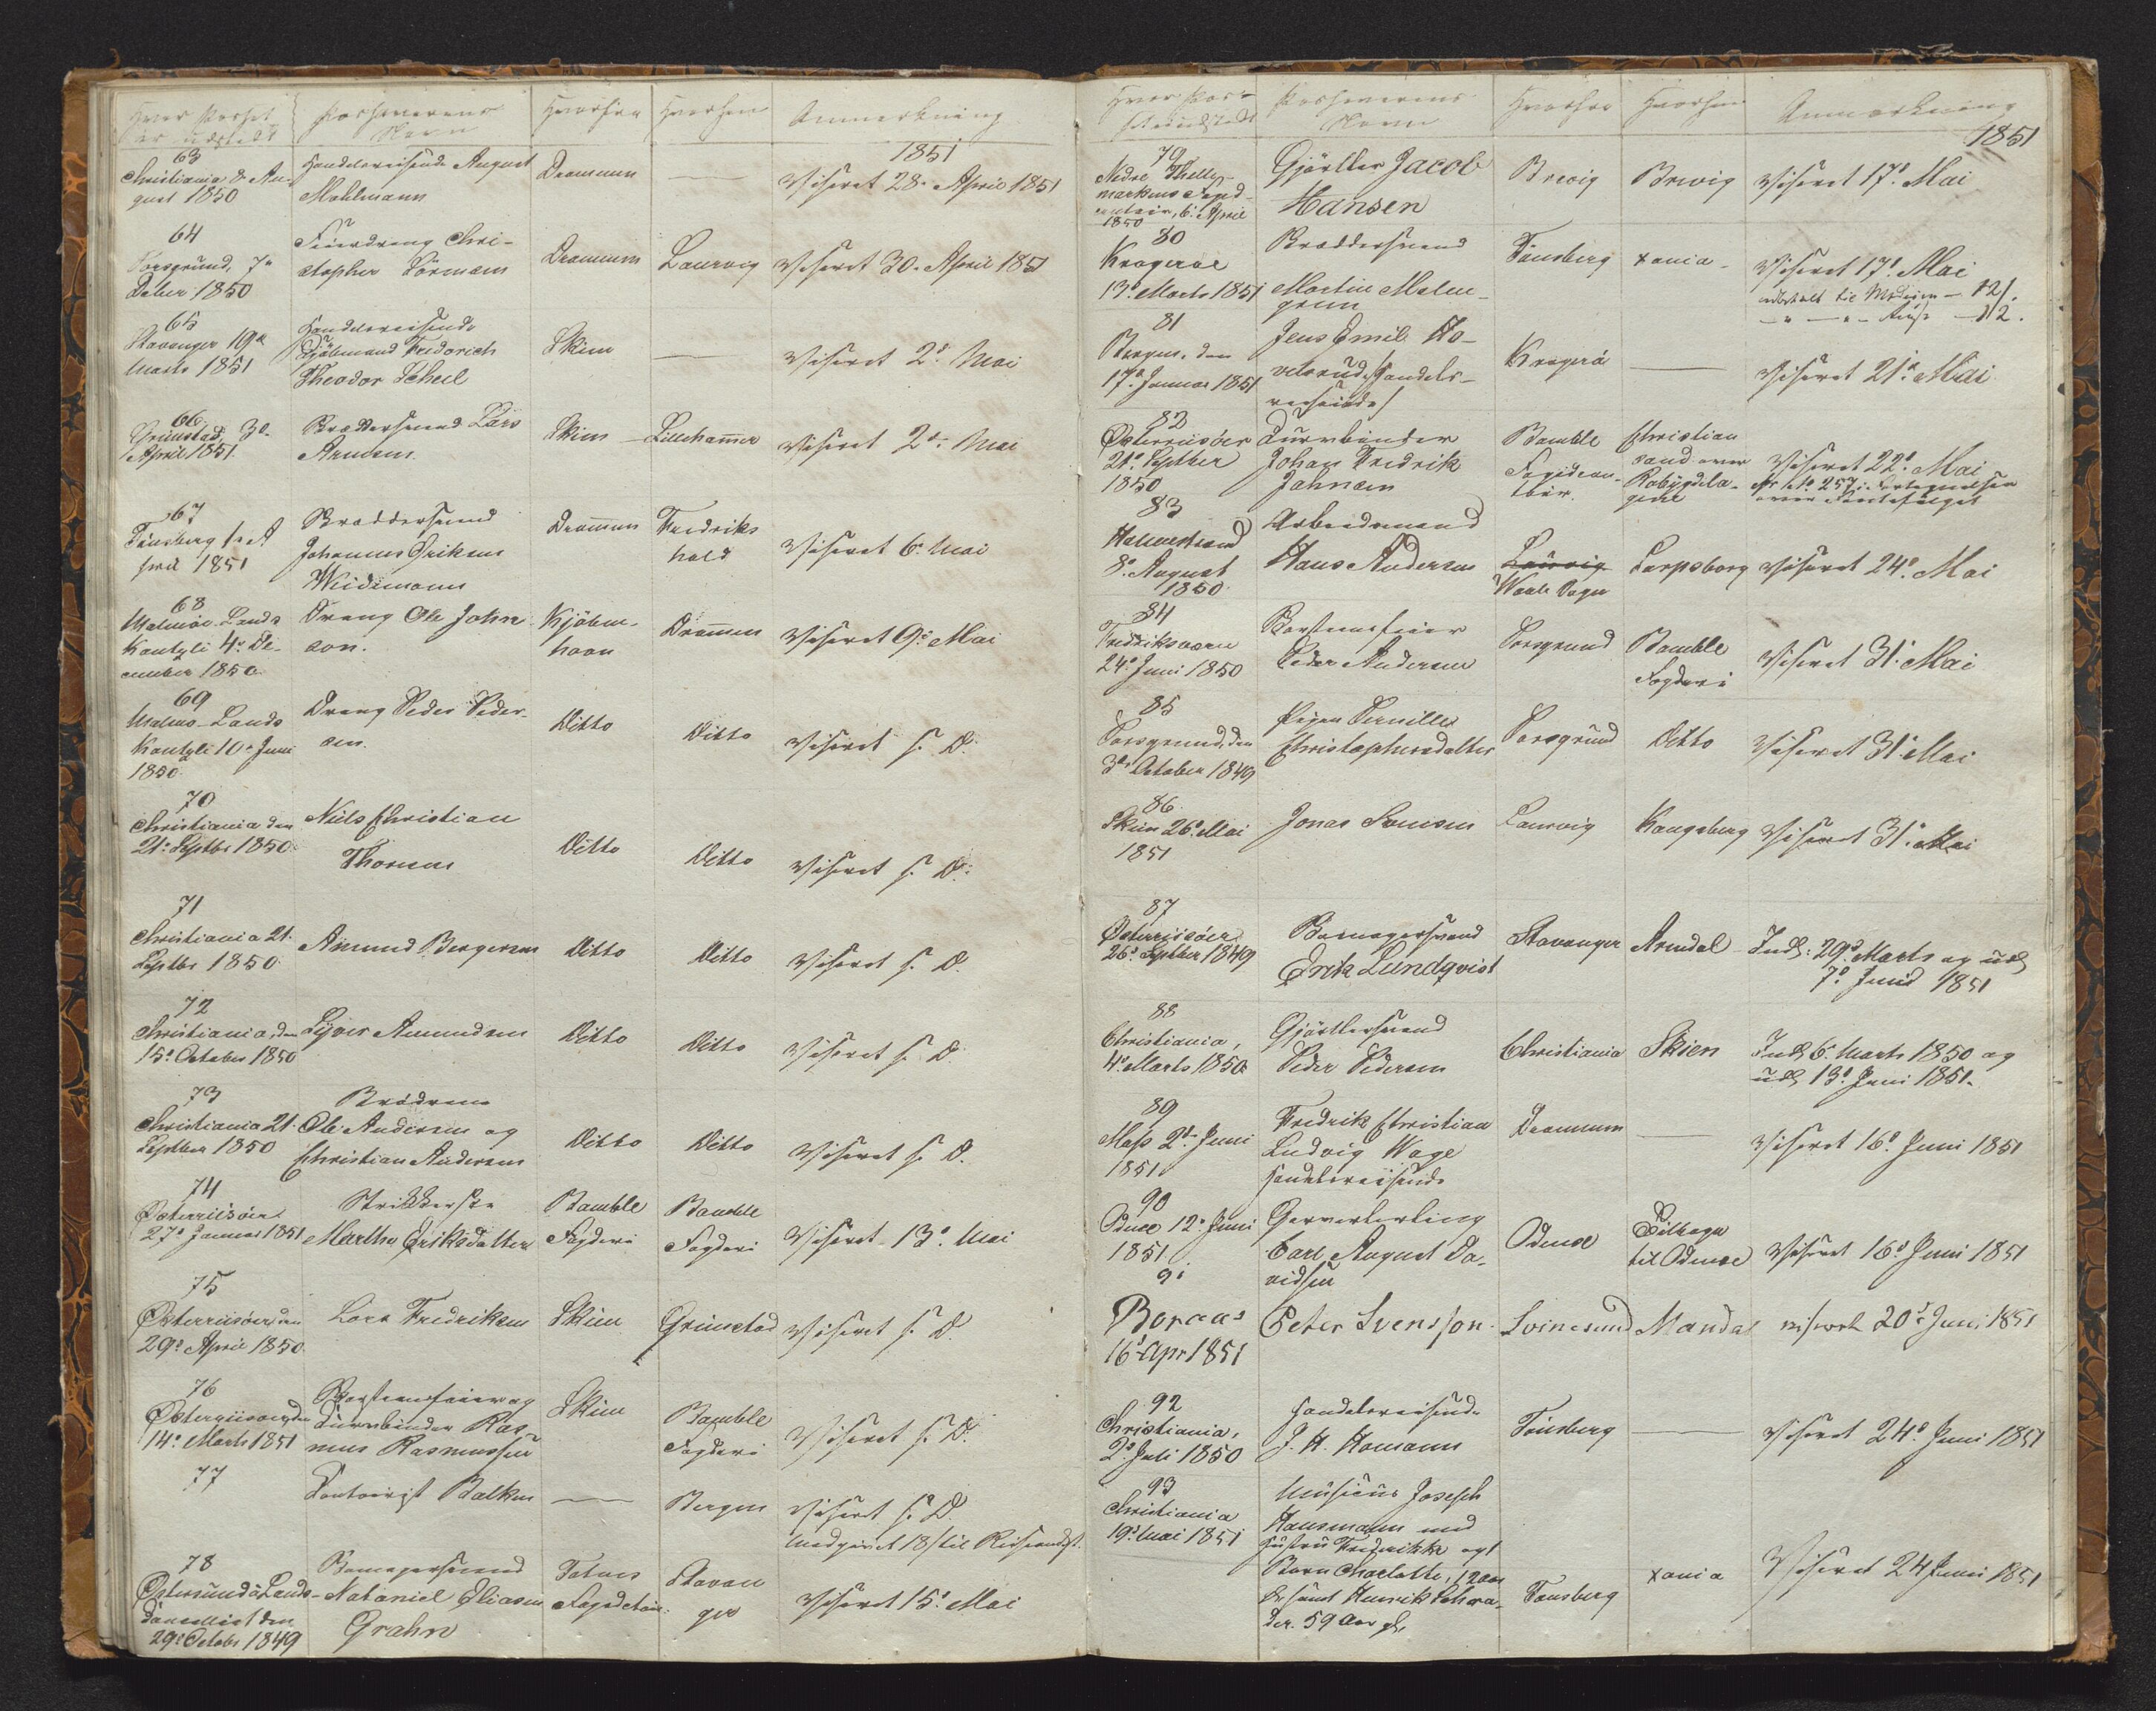 Hvor Passet
er udstedt
Passhaverens
Navn
Hvorfra
Hvorhen
Anmerkning
1851
63
Christiania 8. Au-
gust 1850
Handelsreisende August
Mohlmann
Drammen
Viseret 28. April 1851
64
Porsgrund, 7de
Debr 1850
Feierdreng Chri-
stopher Sörensen
Drammen
Laurvig
Viseret 30. April 1851
65
Stavanger 19de
Marts 1851
Handelsreisende
Fredorich
Theodor Scheel
Skien
Viseret 2d Mai
66
Grimstad, 3d.
April 1851.
Böddersvend Lars
Arntsen
Skien
Lillehammer
Viseret 2d. Mai
67
Tönsberg 1. A
pril 1851
Böddersvend
Johannes Eriksen
Weidemann
Drammen
Fredriks
hald
Viseret 6d Mai
68
Malmöe Lands
Kantzli 4d De-
cember 1850
Dreng Ole John
son.
Kjöben-
havn
Drammen
Viseret 9d Mai
69
Malmö Lands
Kantzli 10d Juni
1850.
Dreng Peder Peder-
sen.
Ditto
Ditto
Viseret s. D.
70
Christiania den
21d Septbr 1850
Niels Christian
Thoresen
Ditto
Ditto
Viseret s. D.
71
Christiania 21.
Septbr 1850
Amund Bergersen
Ditto
Ditto
Viseret s. D.
72
Christiania, den
15d October 1850
Syver Amundsen
Ditto
Ditto
Viseret s. D.
73
Christiania 21.
Septber 1850
Brödrene
Ole Andersen og
Christian Andersen
Ditto
Ditto
Viseret s. D.
74
Österriisöer
27d Januar 1851
Strikkerske
Marthe Eriksdatter
Bamble
Fogderi
Bamble
Fogderi
Viseret 13d Mai
75
Österriisöer den
29d April 1850
Lars Fredriksen
Skien
Grimstad
Viseret s. D.
76
Österriisöer, den
14d Marts 1851
Skorstensfeier og
Kurvbinder Ras-
mus Rasmussen
Skien
Bamble
Fogderi
Viseret s. D.
77
Contoirist Balken
Bergen
Viseret s. D.
78
Östersunds Lands-
cancelliet den
29d Octobr 1849
Bomagersvend
Nataniel Eliasen
Grahn
Fogdeton
Stavan
ger
Viseret 15d Mai
Hvor Pas-
set er udstedt
Passhaverens
Navn
Hvorfra
Hvorhen
Anmerkning
1851
79
Nedre Thelle-
markens Foged
contoir, 6d April
1850
Gjörtler Jacob
Hansen
Brevig
Brevig
Viseret 17d Mai
80
Krageröe
13d Marts 1851
Böddersvend
Martin Malm-
gren
Tönsberg
Xania
Viseret 17d Mai
81
Bergen, den
17d Januar 1851
Jens Emil Ho-
velsrud (Handels-
reisende)
Kragerö
Viseret 21d Mai
82
Österriisöer
21d Septber
1850
Kurvbinder
Johan Fredrik
Johnsen
Bamble
Fogdecon-
toir.
Christian
sand over
Robygdela-
gene
Viseret 22d Mai
83
Holmestrand
8d August
1850.
Arbeidsmand
Hans Andersen
Laurvig
Sarpsborg
Viseret 24d Mai
84
Fredriksværn
24d Juni 1850
Skorstensfeier
Peder Andersen
Porsgrund
Bamble
Fogderi
Viseret 31d Mai
85
Porsgrund, den
3d October 1849
Pigen Pernille
Christophersdatter
Porsgrund
Ditto
Viseret 31d Mai
86
Skien 26d Mai
1851
Jonas Simonsen
Laurvig
Kongsberg
Viseret 31d Mai
87
Österriisöer
26d Septber 1849
Bomagersvend
Erik Lundqvist
Stavanger
Arendal
Indk: 29d Marts og udk
7d Juni 1851
88
Christiania,
4d Marts 1850
Gjörtlersvend
Peder Pedersen
Christiania
Skien
Indk 6d Marts 1850 og
udk 13d Juni 1851.
89
Moss 2d Juni
1851
Fredrik Christian
Ludvig Wage
Handelsreisende
Drammen
Viseret 16d Juni 1851
90
Odense 12d Juni
1851
Garverlærling
Carl August Da-
vidsen
Odense
Tilbage
til Odense
Viseret 16d Juni 1851
91
Boraas
16d Apr 1851
Peter Svensson
Svinesund
Mandal
viseret 20d Juni 1851
92
Christiania,
2d Juli 1850
Handelsreisende
J. H. Homann
Tönsberg
Viseret 24d Juni 1851
93
Christiania
19d Mai 1851
Musicus Joseph
Hausmann med
Hustru Fredrikke og 1
Barn Charlotte, 12 Aar
samt Henrik Schra-
der. 59 Aar gl.
Tönsberg
Xania
Viseret 24 Juni 1851